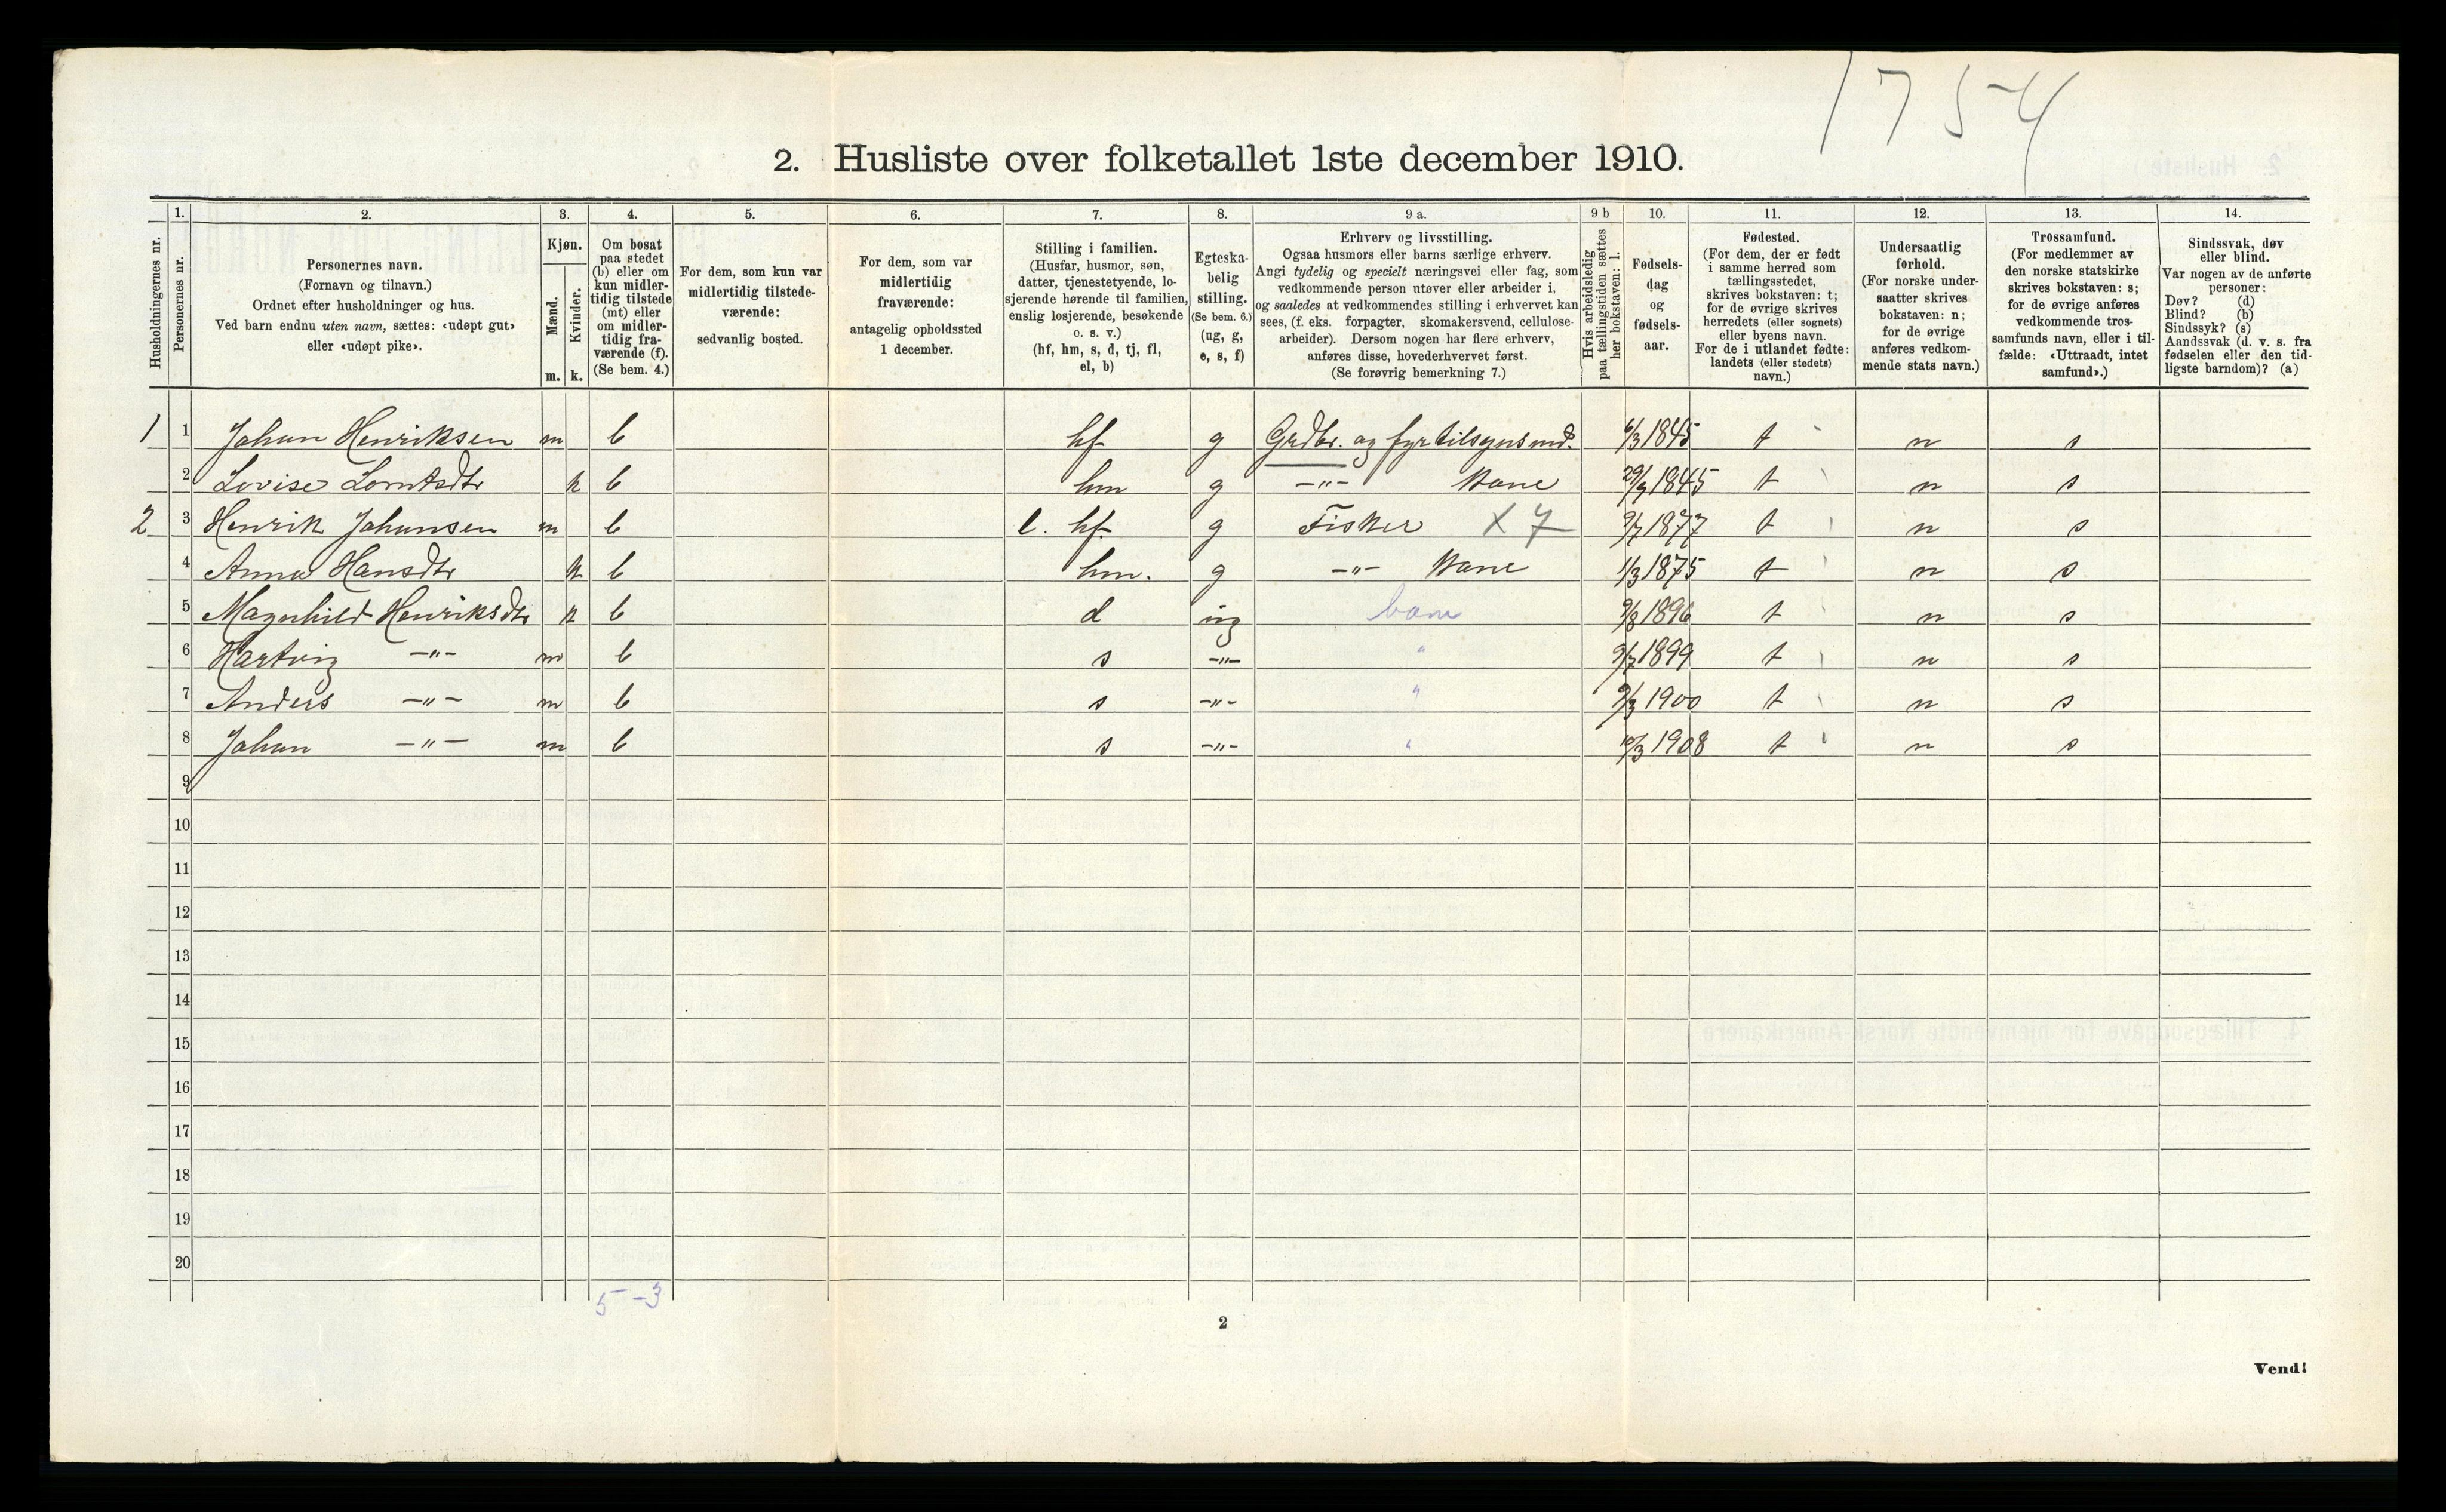 1754
2. Husliste over folketallet 1ste december 1910.
1. 2. 3. 4. 5. 6. 7. 8. 9 a. 9 b 10. 11. 12. 13. 14.
Husholdningernes nr.
Personernes nr.
Personernes navn.
(Fornavn og tilnavn.)
Ordnet efter husholdninger og hus.
Ved barn endnu uten navn, sættes: «udøpt gut»
eller «udøpt pike».
Kjøn.
Mænd.
Kvinder.
m. k.
Om bosat
paa stedet
(b) eller om
kun midler-
tidig tilstede
(mt) eller
om midler-
tidig fra-
værende (f).
(Se bem. 4.)
For dem, som kun var
midlertidig tilstede-
værende:
sedvanlig bosted.
For dem, som var
midlertidig
fraværende:
antagelig opholdssted
1 december.
Stilling i familien.
(Husfar, husmor, søn,
datter, tjenestetyende, lo-
sjerende hørende til familien,
enslig losjerende, besøkende
o. s. v.)
(hf, hm, s, d, tj, fl,
el, b)
Egteska-
belig
stilling.
(Se bem. 6.)
(ug, g,
e, s, f)
Erhverv og livsstilling.
Ogsaa husmors eller barns særlige erhverv.
Angi tydelig og specielt næringsvei eller fag, som
vedkommende person utøver eller arbeider i,
og saaledes at vedkommendes stilling i erhvervet kan
sees, (f. eks. forpagter, skomakersvend, cellulose-
arbeider). Dersom nogen har flere erhverv,
anføres disse, hovederhvervet først.
(Se forøvrig bemerkning 7.)
Hvis arbeidsledig
paa tællingstiden sættes
her bokstaven: l.
Fødsels-
dag
og
fødsels-
aar.
Fødested.
(For dem, der er født
i samme herred som
tællingsstedet,
skrives bokstaven: t;
for de øvrige skrives
herredets (eller sognets)
eller byens navn.
For de i utlandet fødte:
landets (eller stedets)
navn.)
Undersaatlig
forhold.
(For norske under-
saatter skrives
bokstaven: n;
for de øvrige
anføres vedkom-
mende stats navn.)
Trossamfund.
(For medlemmer av
den norske statskirke
skrives bokstaven: s;
for de øvrige anføres
vedkommende tros-
samfunds navn, eller i til-
fælde: «Uttraadt, intet
samfund».)
Sindssvak, døv
eller blind.
Var nogen av de anførte
personer:
Døv? (d)
Blind? (b)
Sindssyk? (s)
Aandssvak (d. v. s. fra
fødselen eller den tid-
ligste barndom)? (a)
1 1 Johan Henriksen m b hf g Grdbr. og fyrtilsynsmd. 6/3 1845 t n s
2 Lovise Lorntsdtr k b hm g -"- Kone 29/9 1845 t n s
2 3 Henrik Johansen m b l. hf. g Fisker X 7 9/7 1877 t n s
4 Anna Hansdtr k b hm. g -"- Kone 1/3 1875 t n s
5 Magnhild Henriksdtr k b d ug barn 9/8 1896 t n s
6 Hartvig -"- m b s -"- " 9/7 1899 t n s
7 Anders -"- m b s -"- " 9/3 1900 t n s
8 Johan -"- m b s -"- " 10/3 1908 t n s
9
10
11
12
13
14
15
16
17
18
19
20
5-3
2
Vend!